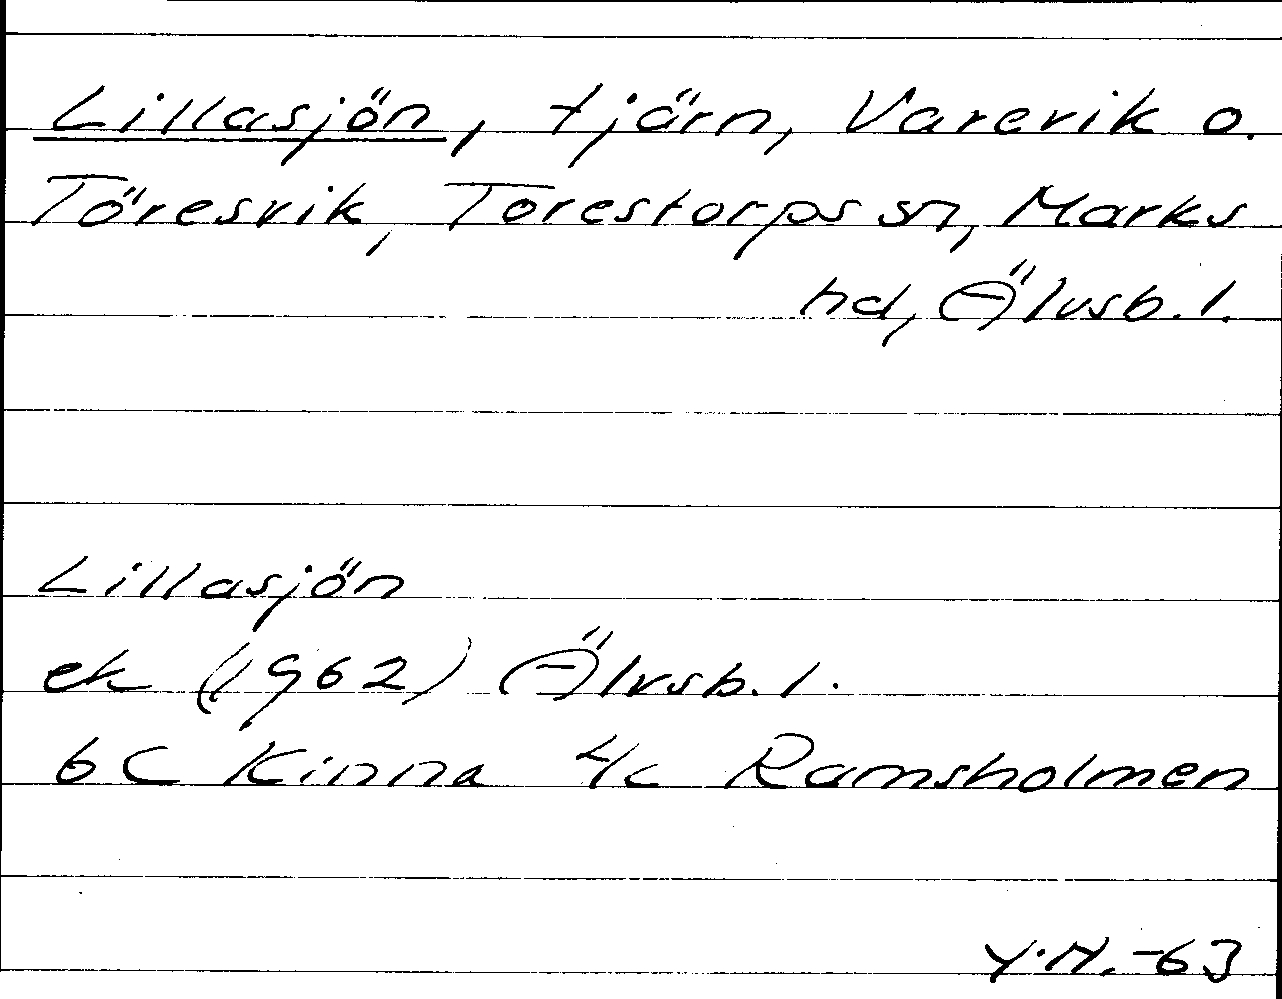 Lillasjön, tjärn, Varevik o.
Töresvik, Torestorps sn, Marks
hd, Älvsb. l.
Lillasjön
ek (1962) Älvsb. l.
6C Kinna 4c Ramsholmen
Y.N. -63